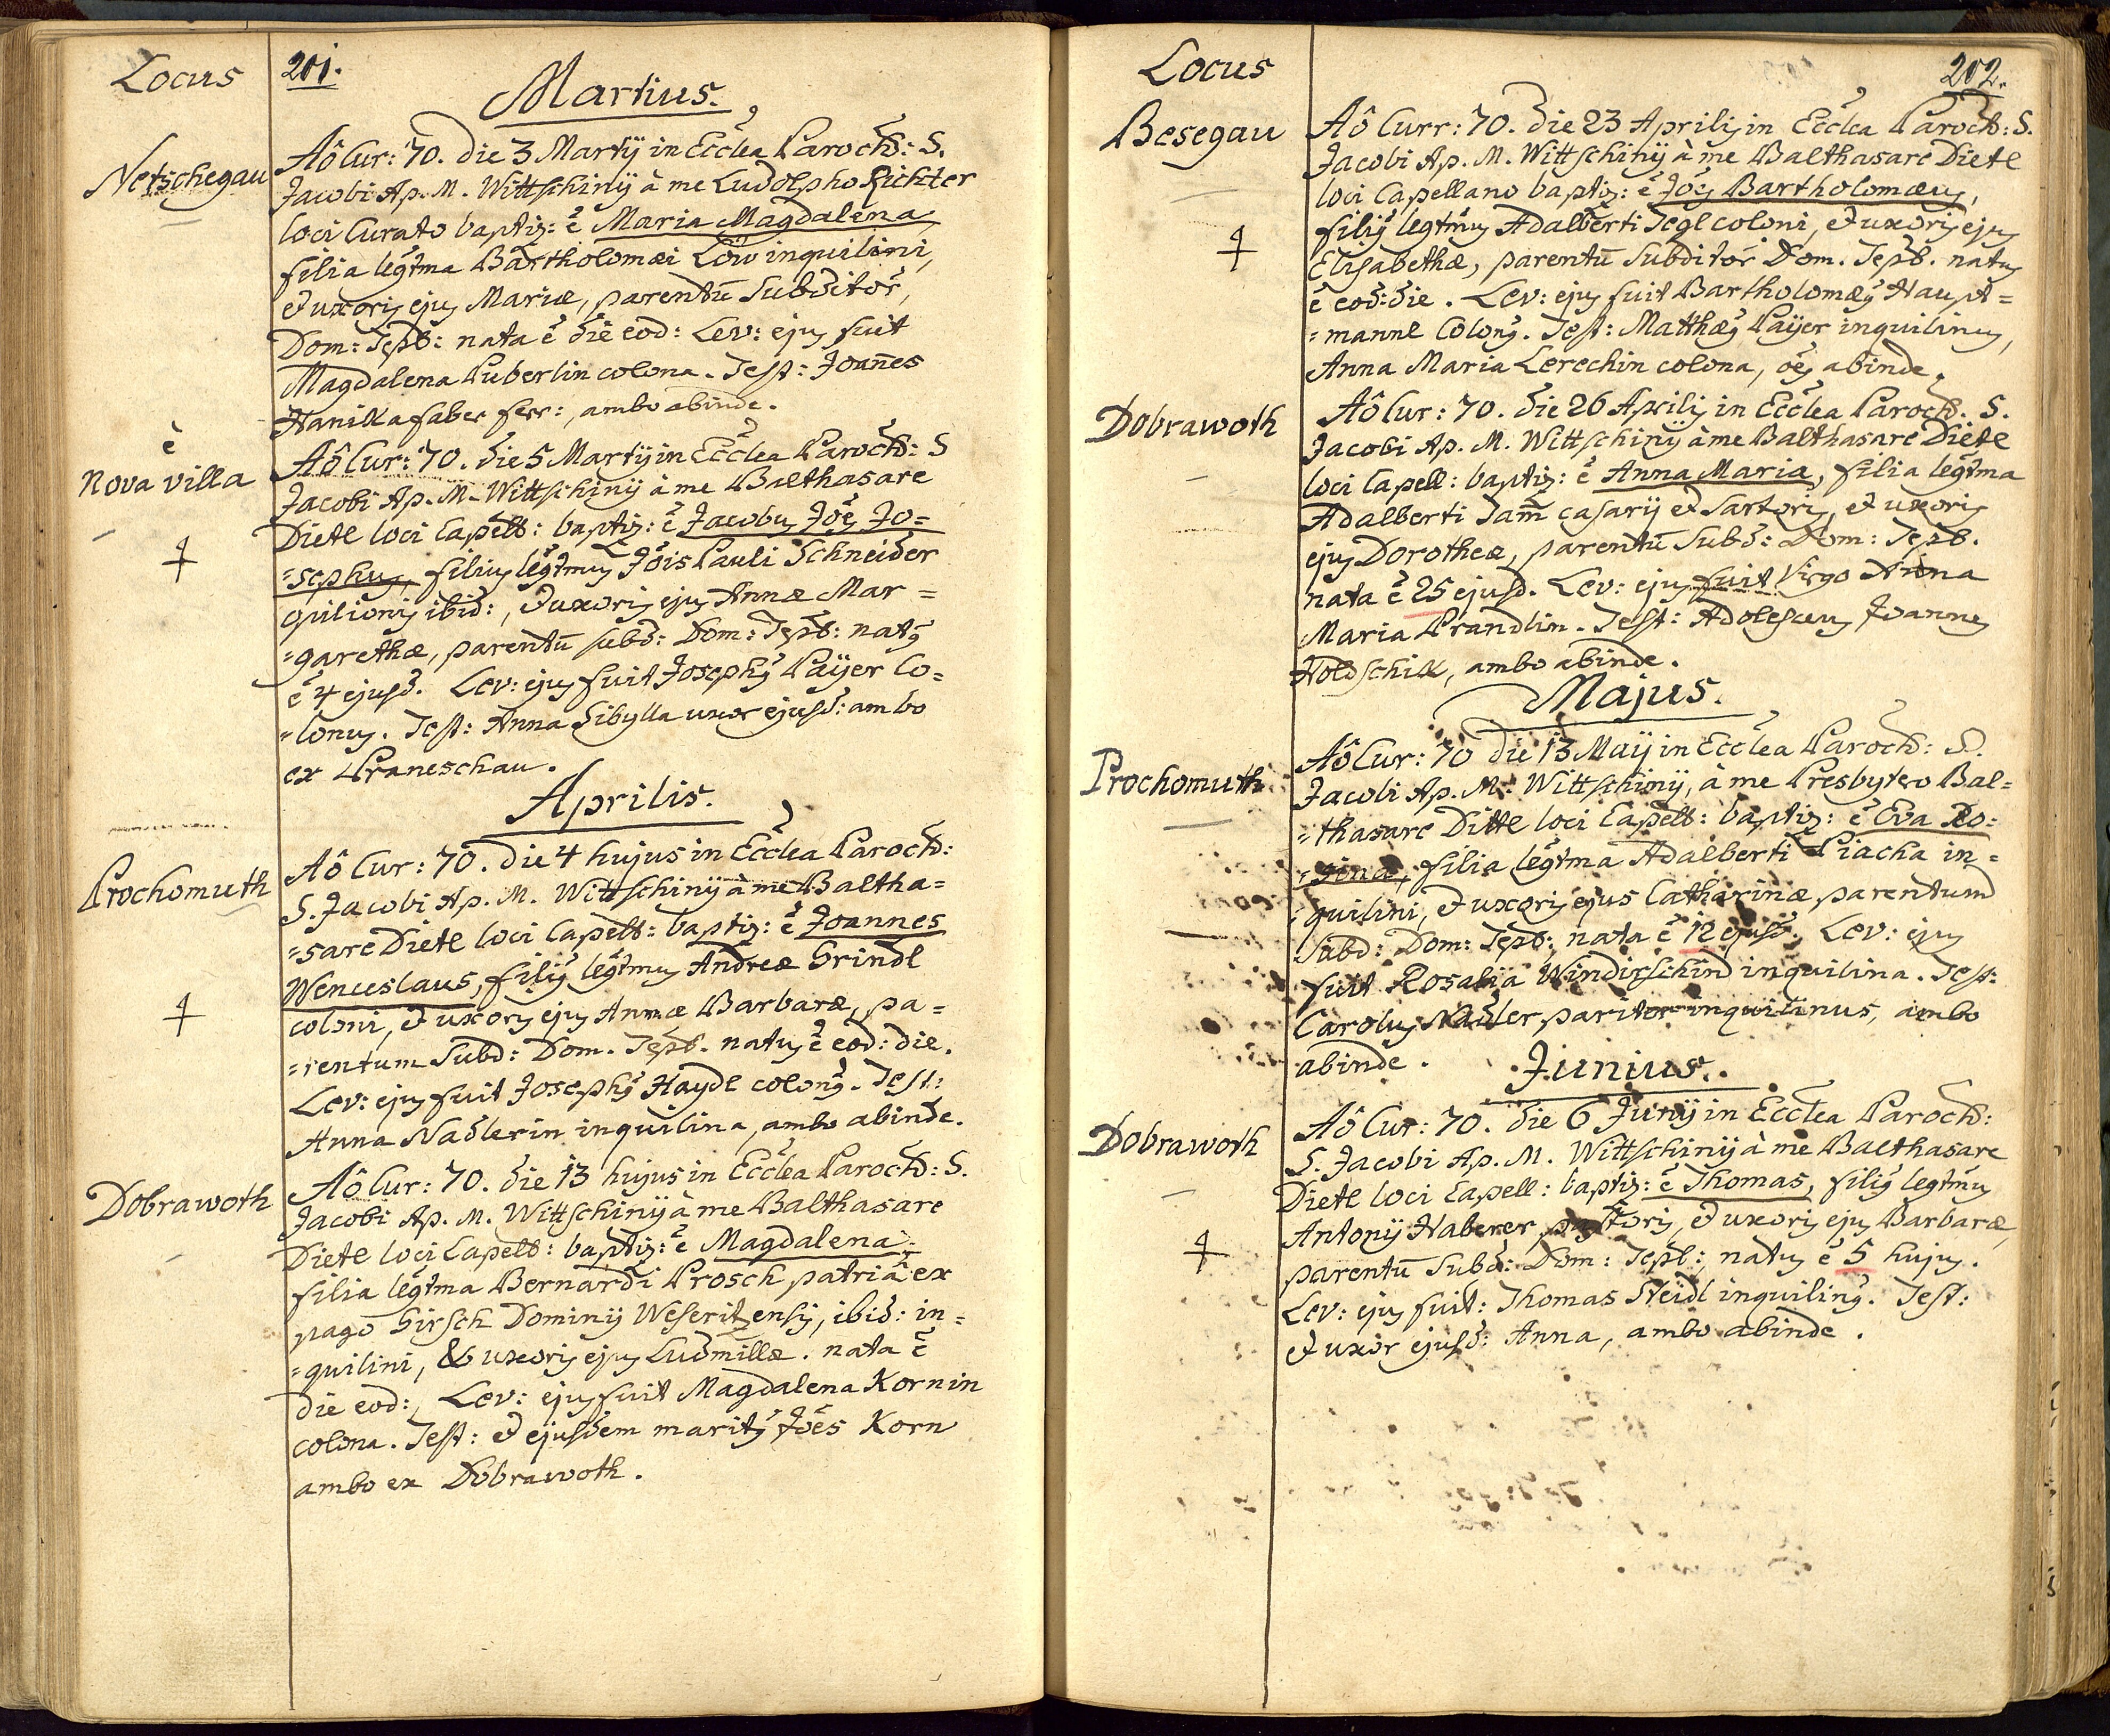 Locus
201.
Martius.
Netschegau
Aô Cur: 70. die 3 Martij in Eccłea Paroch: S.
Jacobi Ap. M. Wittschinij à me Ludolpho Richter
loci Curato baptiz: ē Maria Magdalena
filia legtma Bartholomæi Löw inquilini,
et uxoris ejus Mariæ, parentū Subditor,
Dom: Tepl: nata ē die eod: Lev: ejus fuit
Magdalena Puberlin colona. Test: Joañes
Hanika faber ferr:, ambo abinde.
è
Nova villa
Aô Cur: 70. die 5 Martij in Eccłea Paroch: S
Jacobi Ap. M. Wittschinij à me Balthasare
Dietl loci Capell: baptiz: ē Jacobus Jōes Jo=
=sephus, filius legtmus Jōis Pauli Schneider
opilionis ibid:, et uxoris ejus Annæ Mar=
=garethæ, parentū subd: Dom: Tepl: natus
ē 4 ejusd. Lev: ejus fuit Josephus Paÿer Co=
=lonus. Test: Anna Sibylla uxor ejusd: ambo
ex Praneschau.
Aprilis.
Prochomuth
Aô Cur: 70. die 4 hujus in Eccłea Paroch:
S. Jacobi Ap. M. Wittschinij à me Baltha=
=sare Dietl loci Capell: baptiz: ē Joannes
Wenceslaus, filius legtmus Andreæ Grindl
coloni, et uxoris ejus Annæ Barbaræ, pa=
=rentum Subd: Dom. Tepl. natus ē eod: die.
Lev: ejus fuit Josephus Haydl colonus. Test:
Anna Nadlerin inquilina, ambo abinde.
Dobrawoth
Aô Cur: 70. die 13 hujus in Eccłea Paroch: S.
Jacobi Ap. M. Wittschinij à me Balthasare
Dietl loci Capell: baptiz: ē Magdalena
filia legtma Bernardi Prosch patriâ ex
pago Girsch Dominij Weseritzensis, ibid: in=
=quilini, & uxoris ejus Ludmillæ. nata ē
die eod:, Lev: ejus fuit Magdalena Kornin
colona. Test: et ejusdem maritus Jōes Korn
ambo ex Dobrawoth.
Locus
202.
Besegau
Aô Curr: 70. die 23 Aprilis in Eccłea Paroch: S.
Jacobi Ap. M. Wittschinij à me Balthasare Dietl
loci Capellano baptiz: ē Jōes Bartholomæus,
filius legtmus Adalberti Tegl coloni, et uxoris ejus
Elisabethæ, parentū Subditor Dom. Tepl. natus
ē eod: die. Lev: ejus fuit Bartholomæus Haupt=
=mannl Colonus. Test: Matthæus Paÿer inquilinus,
Anna Maria Lerechin colona, oēs abinde.
Dobrawoth
Aô Cur: 70. die 26 Aprilis in Eccłea Paroch. S.
Jacobi Ap. M. Wittschinij à me Balthasare Dietl
loci Capell: baptiz: ē Anna Maria, filia legtma
Adalberti Tam̄ casarij et Sartoris, et uxoris
ejus Dorotheæ, parentū Subd: Dom: Tepl.
nata ē 25 ejusd. Lev: ejus fuit Virgo Anna
Maria Prandlin. Test: Adolescens Joannes
Woldschik, ambo abinde.
Majus.
Prochomuth
Aô Cur: 70 die 13 Maij in Eccłea Paroch: S.
Jacobi Ap. M. Wittschinij, à me Presbytero Bal=
=thasare Dittl loci Capell: baptiz: ē Eva Ro=
=sina, filia legtma Adalberti Piacka in=
=quilini, et uxoris ejus Catharinæ parentum
Subd: Dom: Tepl: nata ē 12 ejusd: Lev: ejus
fuit Rosalia Windirschind inquilina. Test:
Carolus Nadler pariter inquilinus, ambo
abinde.
Junius.
Dobrawoth
Aô Cur: 70. die 6 Junij in Eccłea Paroch:
S. Jacobi Ap. M. Wittschinij à me Balthasare
Dietl loci Capell: baptiz: ē Thomas, filius legtmus
Antonij Haberer pastoris, et uxoris ejus Barbaræ,
parentū Subd: Dom: Tepl:, natus ē 5 hujus.
Lev: ejus fuit: Thomas Steidl inquilinus. Test:
et uxor ejusd: Anna, ambo abinde.